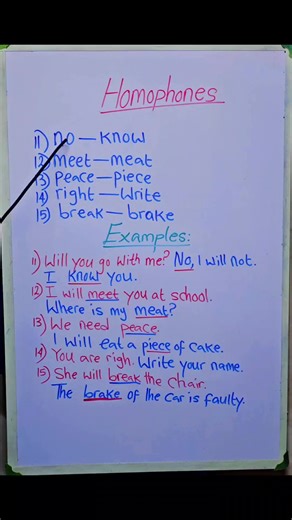 Homophones
11) no — know
12) meet — meat
13) peace — piece
14) right — write
15) break — brake
Examples:
11) Will you go with me? No, I will not.
I know you.
12) I will meet you at school.
Where is my meat?
13) We need peace.
I will eat a piece of cake.
14) You are righ. Write your name.
15) She will break the chair.
The brake of the car is faulty.